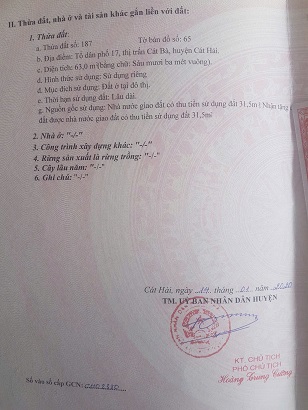 II. Thửa đất, nhà ở và tài sản khác gắn liền với đất:
1. Thửa đất:
a. Thửa đất số: 187 Tờ bản đồ số: 65
b. Địa điểm: Tổ dân phố 17, thị trấn Cát Bà, huyện Cát Hải.
c. Diện tích: 63,0 m² (bằng chữ: Sáu mươi ba mét vuông).
d. Hình thức sử dụng: Sử dụng riêng
đ. Mục đích sử dụng: Đất ở tại đô thị.
e. Thời hạn sử dụng đất: Lâu dài.
g. Nguồn gốc sử dụng: Nhà nước giao đất có thu tiền sử dụng đất 31,5m²; Nhận tặng
đất được nhà nước giao đất có thu tiền sử dụng đất 31,5m²
2. Nhà ở: "-/-"
3. Công trình xây dựng khác: "-/-"
4. Rừng sản xuất là rừng trồng: "-/-"
5. Cây lâu năm: "-/-"
6. Ghi chú: "-/-"
Cát Hải, ngày 14 tháng 01 năm
TM. ỦY BAN NHÂN DÂN HUYỆN
KT. CHỦ TỊCH
PHÓ CHỦ TỊCH
Hoàng Trung Cường
Số vào sổ cấp GCN: